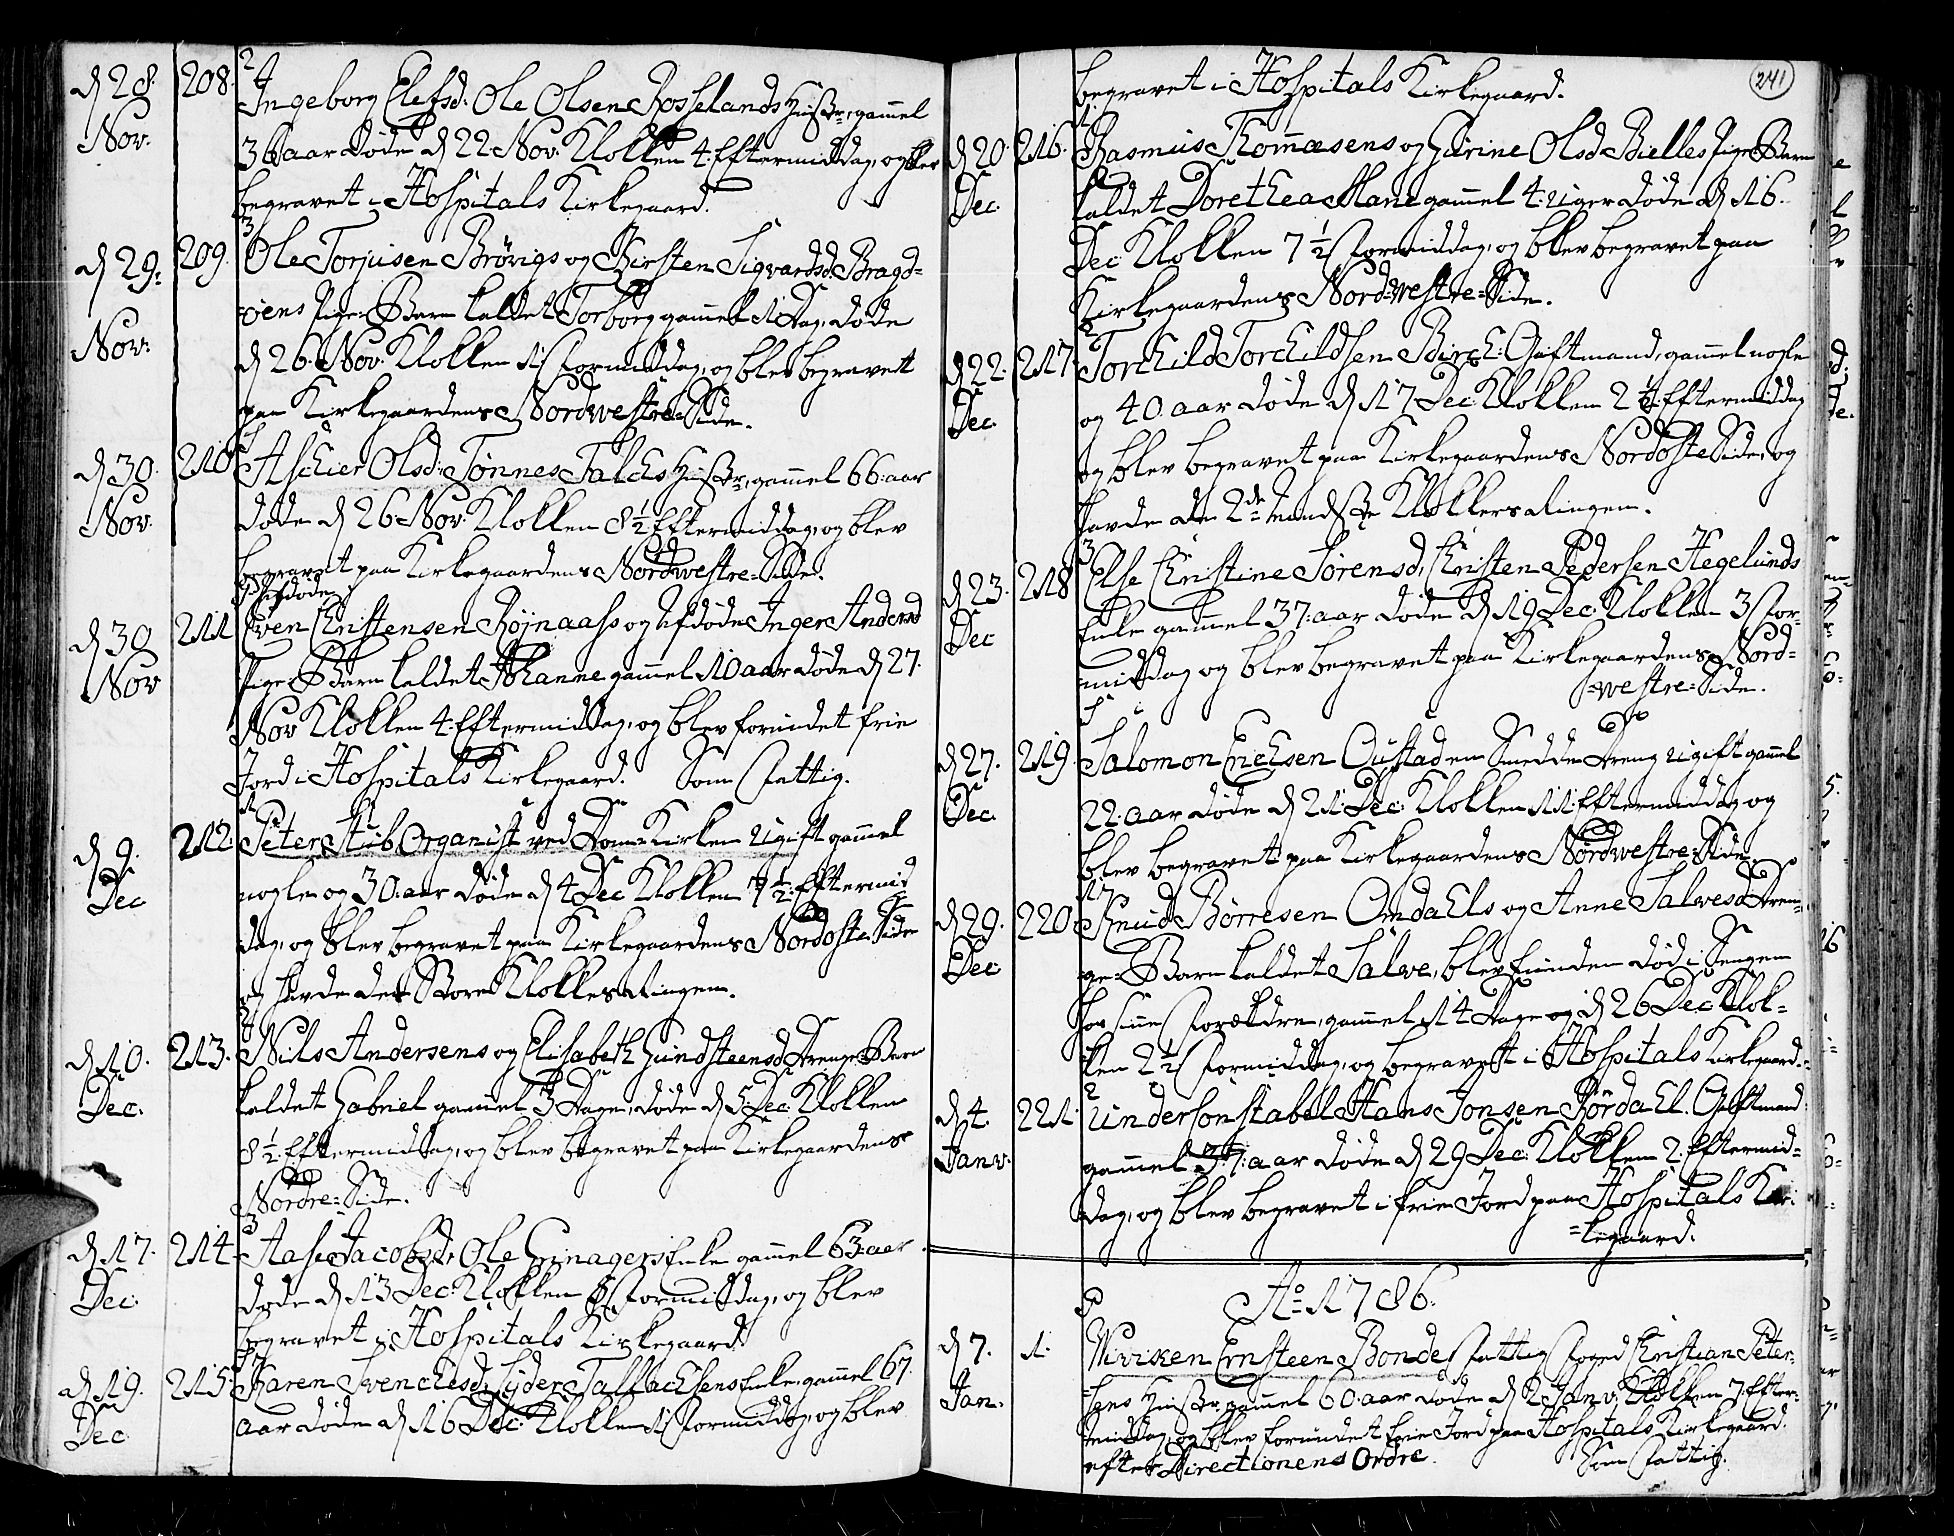 d 28 Nov. 208. 2 Ingeborg Elefsd. Ole Olsen Rosselands Hustr. gammel
36 aar døde d 22 Nov. Klokken 4. Eftermiddag, og blev
begravet i Hospitals Kirkegaard.
d 29. Nov. 209. 3 Ole Torjusen Brövigs og Kirsten Sigvardsd. Bragd=
=öens Pige=Barn kaldet Torborg gammel 1 Dag, døde
d 26. Nov. Klokken 1 Formiddag, og blev begravet
paa Kirkegaardens Nordwestre=Side.
d 30. Nov. 210. Aschier Olsd. Tönnes Falchs Hustr, gammel 66. aar
døde d 26. Nov. Klokken 8 1/2 Eftermiddag, og blev
begravet paa Kirkegaardens Nordwestre=Side.
d 30 Nov 211 Afdøde Even Christensen Røjnaass og Afdøde Inger Andersd
Pige=Barn kaldet Johanne gammel 10 aar døde d 27.
Nov Klokken 4. Eftermiddag, og blev forundet frie
Jord i Hospitals Kirkegaard. Som Fattig.
d 9. Dec 212. 1 Peter Stub Organist ved Dom=Kirken Ugift gammel
nogle og 30. aar døde d 4 Dec Klokken 7 1/2. Eftermid
dag, og blev begravet paa Kirkegaardens Nordoste Side
og havde den Store Klokkes Ringen.
d 10. Dec. 213. 2 Nils Andersens og Elisabeth Gundsteensd Drenge=Barn
kaldet Gabriel gammel 3 Dage, døde d 5. Dec. Klokken
8 1/2 Eftermiddag, og blev begravet paa Kirkegaardens
Nordre=Side.
d 17. Dec. 214. 3 Aase Jacobsd. Ole Grinagers Enke gammel 63. aar
døde d 13 Dec. Klokken 8 Formiddag, og blev
begravet i Hospitals Kirkegaard.
d 19. Dec 215. Karen Svenchesd. Syder Tallachsens Enke gammel 67.
aar døde d 16 Dec: Klokken 1 Formiddag, og blev
241
begravet i Hospitals Kirkegaard.
d 20. Dec. 216. 1 Rasmus Thommæsens og Gurine Olsd Bielles Pige=Barn
kaldet Dorethea Mane gammel 4. uger døde d 16.
Dec. Klokken 7 1/2 Formiddag, og blev begravet paa
Kirkegaardens Nord=westre=Side.
d 22. Dec. 217. 2 Torchild Torchildsen Birch. Giftmand, gammel nogle
og 40. aar døde d 17 Dec. Klokken 2 1/2. Eftermiddag
og blev begravet paa Kirkegaardens Nordoste Side, og
havde den 2de mindste Klokkers Ringen.
d 23. Dec 218 3 Else Christine Sørensd. Christen Pedersen Hegelunds
Enke gammel 37. aar døde d 19 Dec. Klokken 3 For=
middag og blev begravet paa Kirkegaardens Nord=
=westre=Side.
d 27. Dec. 219. Salomon Erichsen Oustad en Smedde Dreng ugift gammel
22. aar døde d 21. Dec: Klokken 11. Eftermiddag og
blev begravet paa Kirkegaardens Nordwestre=Side.
d 29. Dec 220. Knud Børresen Omdahls og Anne Salvesd. Dren=
ge=Barn kaldet Salve, blev funden død i Sengen
hos sinne Forældre, gammel 14 Dage og d 26 Dec Klok=
ken 2 1/2 Formiddag, og begravet i Hospitals Kirkegaard.
d 4. Janv. 221. 2 Underconstabel Hans Jonsen Rørdahl. Giftmand
gammel 37. aar døde d 29 Dec: Klokken 2. Eftermid=
dag, og blev begravet i frie Jord paa Hospitals Kir=
=kegaard.
Ao 1786.
d 7. Jan. 1. Wivicken Ernsteen Bonde Fattig Foged Christian Peter=
sens Hustr, gammel 60. aar døde d 2 Janv. Klokken 7. Efter=
middag, og blev forundet frie Jord paa Hospitals Kirkegaard.
efter Directionens Ordre. Som Fattig.